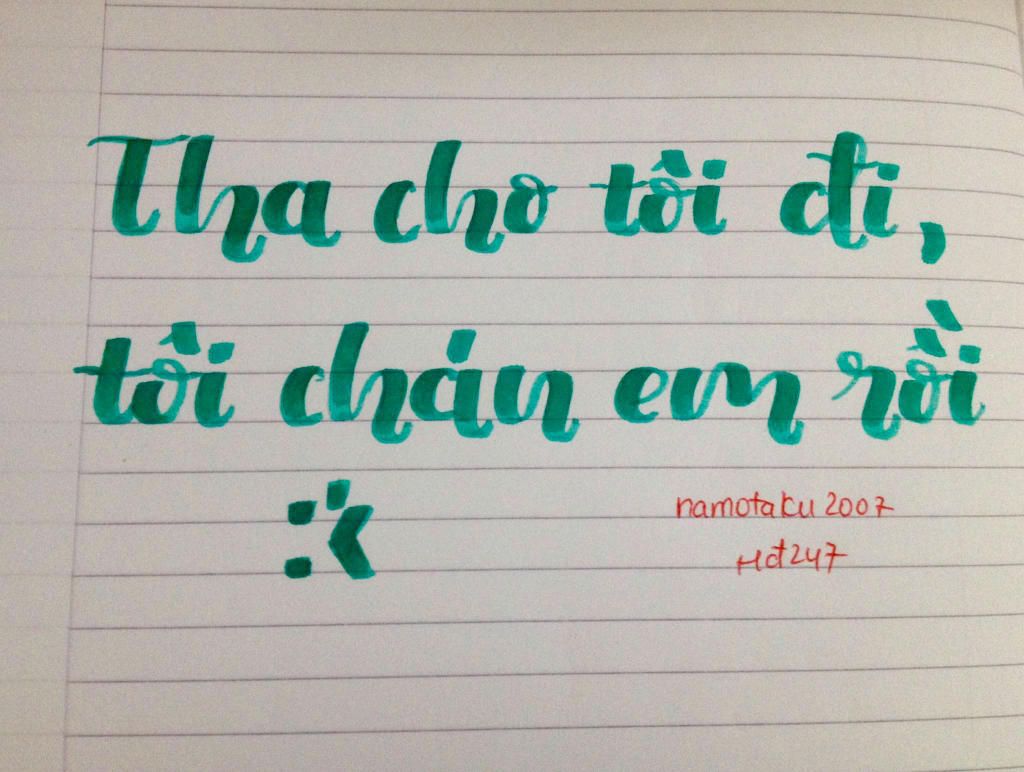 Tha cho tôi đi,
tôi chán em rồi
:'<
namotaku2007
Hđ247